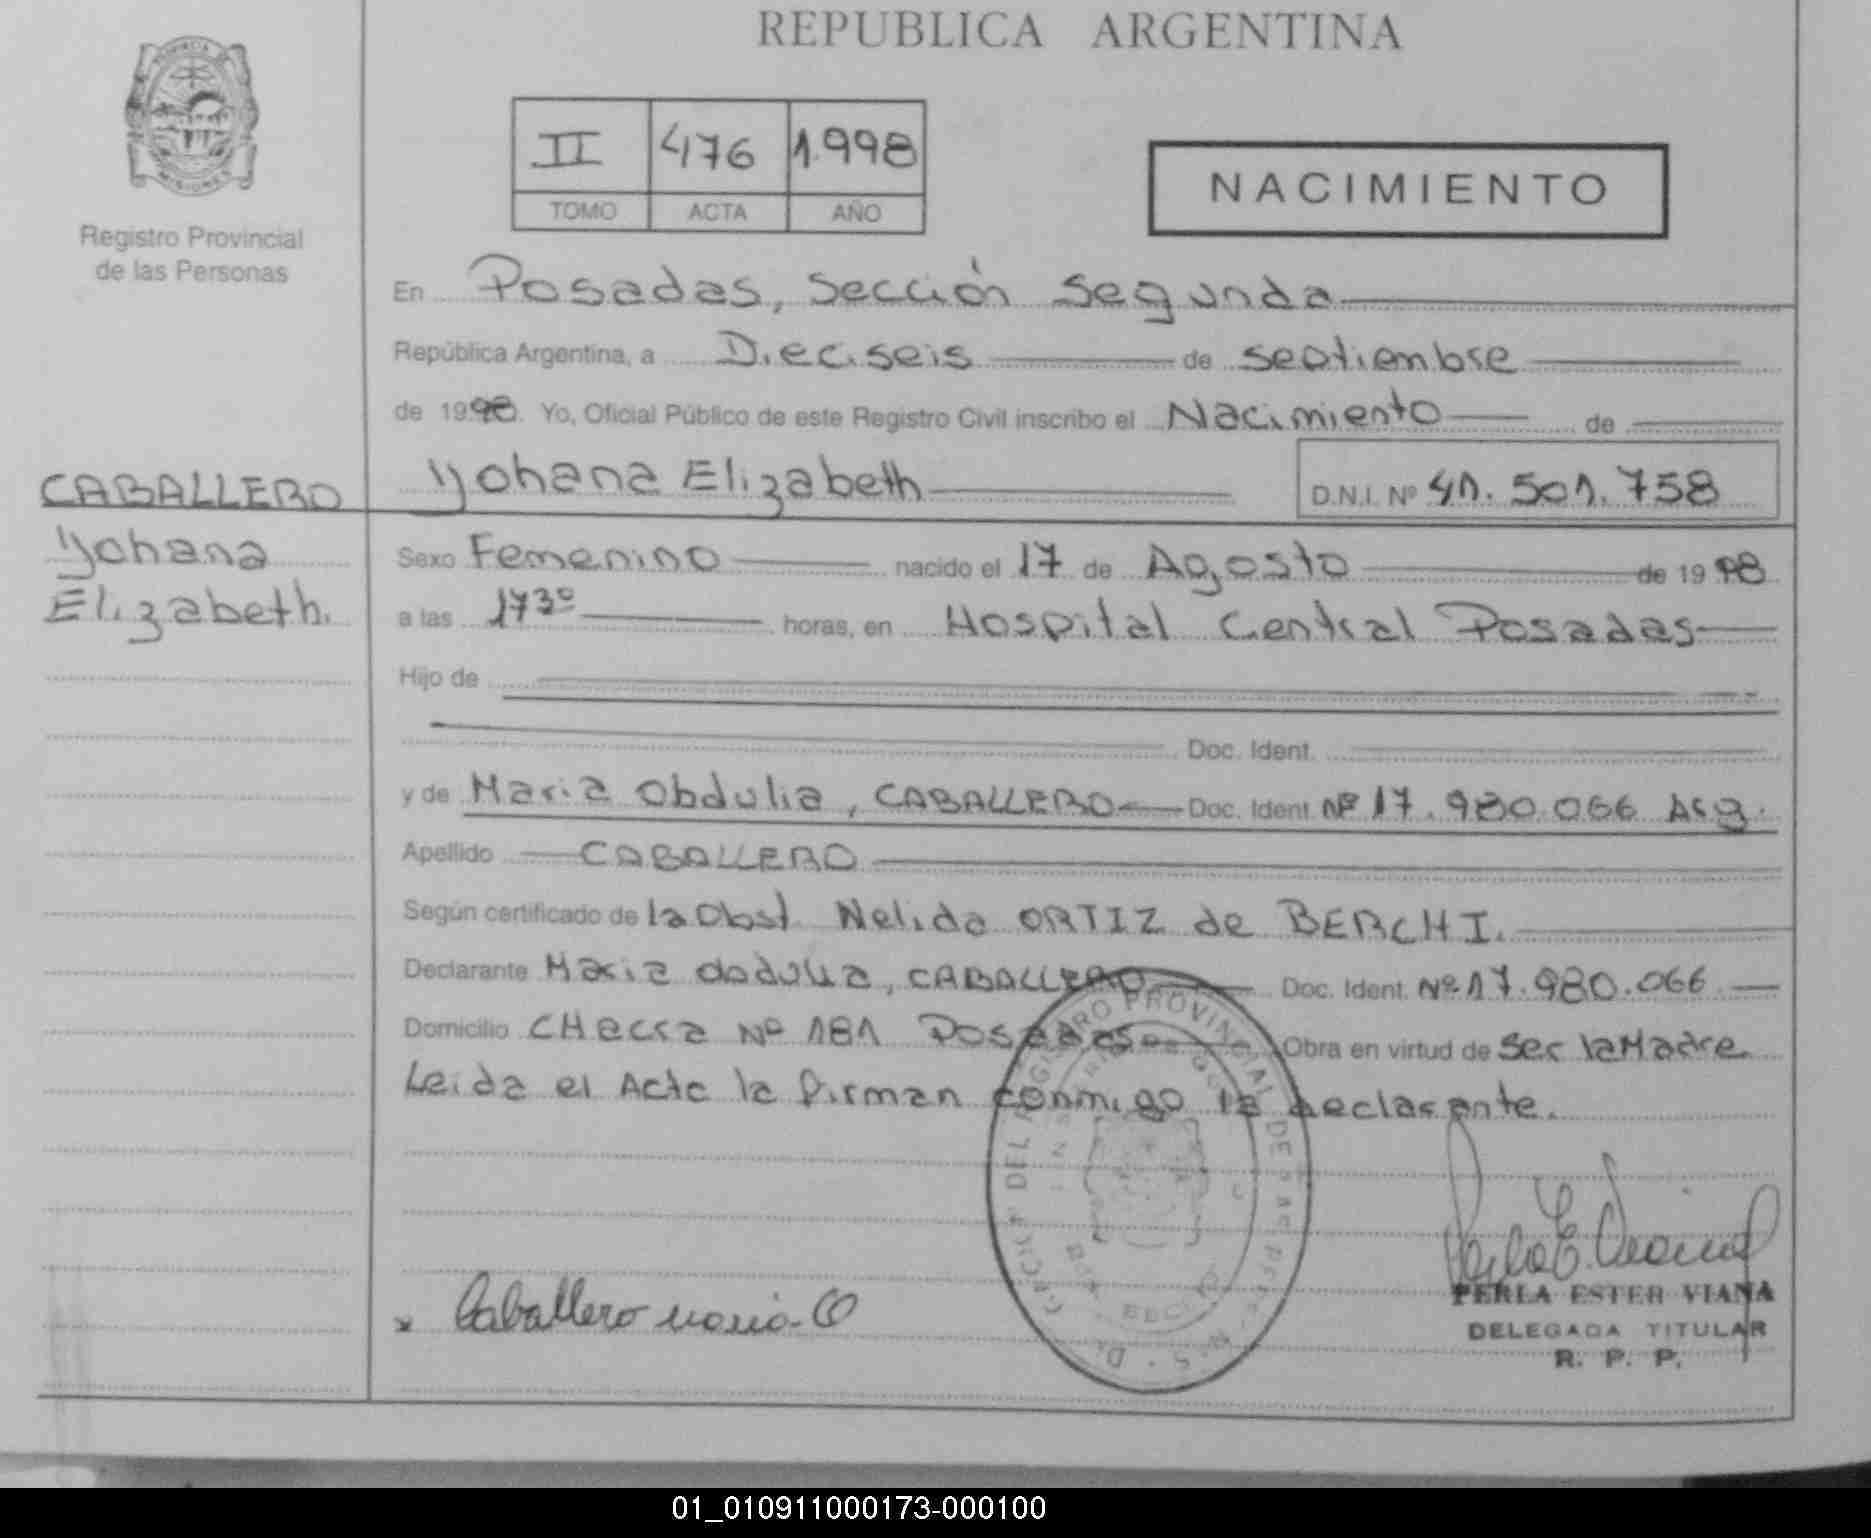 REPUBLICA ARGENTINA
II 476 1998
TOMO ACTA AÑO
NACIMIENTO
MISIONES
Registro Provincial
de las Personas
En Posadas, Sección Segunda
República Argentina, a Dieciseis de septiembre
de 1998. Yo, Oficial Público de este Registro Civil inscribo el Nacimiento de
Yohana Elizabeth D.N.I. Nº 41.501.758
CABALLERO
Yohana
Elizabeth.
Sexo Femenino nacido el 17 de Agosto de 1998
a las 17³⁰ horas, en Hospital Central Posadas
Hijo de
Doc. Ident.
y de Maria Obdulia, CABALLERO Doc. Ident. Nº 17.980.066 Arg.
Apellido CABALLERO
Según certificado de la Obst. Nelida ORTIZ de BERCHI.
Declarante Maria Obdulia, CABALLERO Doc. Ident. Nº 17.980.066
Domicilio CHacra Nº 181 Posadas Obra en virtud de Ser la Madre
Leida el Acta la firman conmigo la declarante.
REGISTRO PROVINCIAL DE LAS
Caballero Maria O
PERLA ESTER VIANA
DELEGADA TITULAR
R. P. P.
01_010911000173-000100